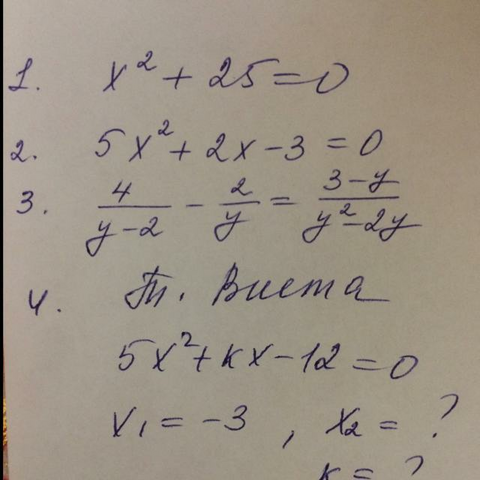 1. x² + 25 = 0
2. 5x² + 2x - 3 = 0
3. 4/(y-2) - 2/y = (3-y)/(y²-2y)
4. Т. Виета
5x² + kx - 12 = 0
x₁ = -3, x₂ = ?
k = ?